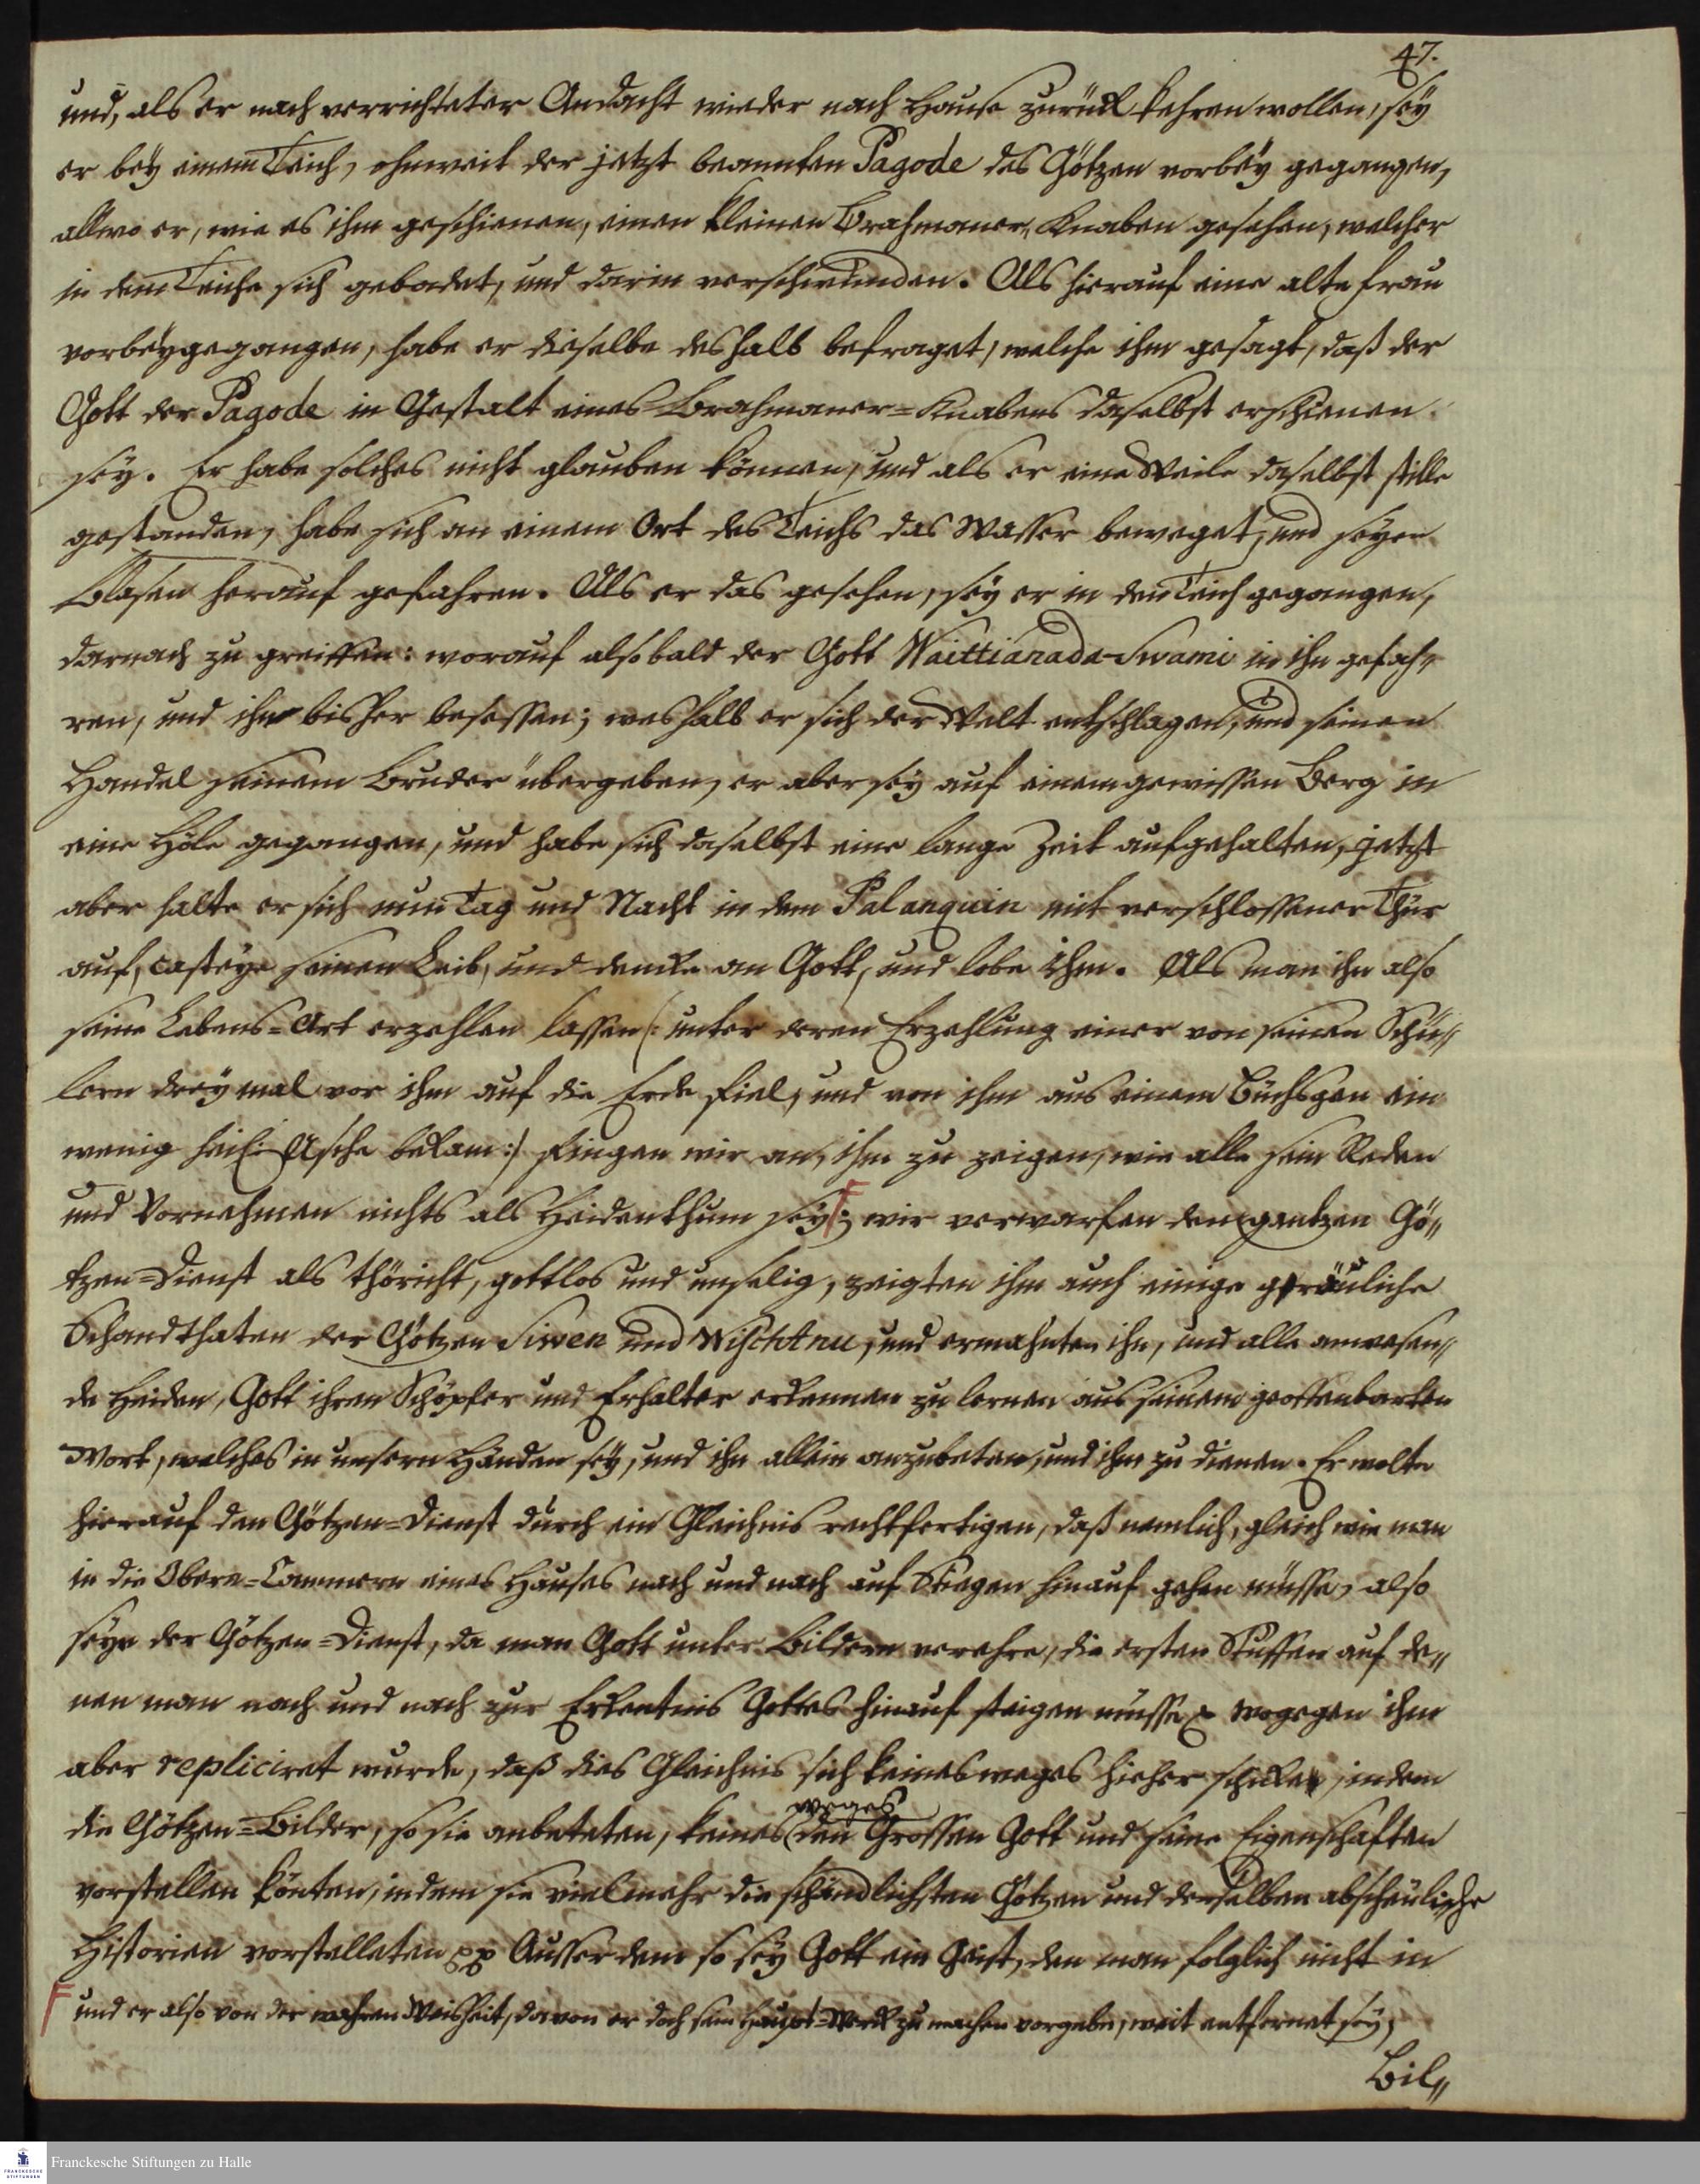 47.
und, als er nach verrichteter Andacht wieder nach Hause zurück kehren wollen, sey
er bey einem Teich, ohnweit der jetzt benannten Pagode des Götzen vorbey gegangen,
allwo er, wie es ihm geschienen, einen kleinen Brahmaner, Knaben gesehen, welcher
in dem Teiche sich gebadet, und darin verschwunden. Als hierauf eine alte Frau
vorbeygegangen, habe er dieselbe deshalb befraget, welche ihm gesagt, daß der
Gott der Pagode in Gestalt eines Brahmaner=Knabens daselbst erschienen
sey. Er habe solches nicht glauben können, und als er eine Weile daselbst stille
gestanden, habe sich an einem Ort des Teichs das Wasser beweget, und seyen
Blasen herauf gefahren. Als er das gesehen, sey er in den Teich gegangen,
darnach zu greiffen: worauf alsobald der Gott Waittianada-Swami in ihn gefah„
ren, und ihn bisher besessen; weshalb er sich der Welt entschlagen, und seinen
Handel seinem Bruder übergeben, er aber sey auf einem gewissen Berg in
eine Höle gegangen, und habe sich daselbst eine lange Zeit aufgehalten, jetzt
aber halte er sich nun Tag und Nacht in dem Palanquin mit verschlossener Thür
auf, casteye seinen Leib, und dencke an Gott, und lobe ihn. Als man ihn also
seine Lebens=Art erzehlen lassen (: unter deren Erzehlung einer von seinen Schü„
lern drey mal vor ihm auf die Erde fiel, und von ihm aus einem Büchsgen ein
wenig heil: Asche bekam :) fingen wir an, ihm zu zeigen, wie alle sein Reden
und Vornehmen nichts als Heidenthum sey F; wir verwarfen den gantzen Gö„
tzen=Dienst als thöricht, gottlos und unselig, zeigten ihm auch einige gräuliche
Schandthaten der Götzen Siwen und Wischtnu, und ermahnten ihn, und alle anwesen„
de Heiden, Gott ihren Schöpfer und Erhalter erkennen zu lernen aus seinem geoffenbarten
Wort, welches in unsern Händen sey, und ihn allein anzubeten, und ihm zu dienen. Er wolte
hierauf den Götzen=Dienst durch ein Gleichnis rechtfertigen, daß nemlich, gleich wie man
in die Obern=Cammern eines Hauses nach und nach auf Stiegen hinauf gehen müsse, also
seye der Götzen=Dienst, da man Gott unter Bildern verehre, die ersten Stuffen auf de„
nen man nach und nach zur Erkentnis Gottes hinauf steigen müsse wogegen ihm
aber repliciret wurde, daß dies Gleichnis sich keinesweges hieher schicke, indem
weges
die Götzen=Bilder, so sie anbeteten, keines den Grossen Gott und seine Eigenschaften
vorstellen könten, indem sie vielmehr die schändlichsten Götzen und derselben abscheuliche
Historien vorstelleten pp Ausser dem so sey Gott ein Geist, den man folglich nicht in
F und er also von der wahren Weisheit, davon er doch sein Haupt=Werk zu machen vorgebe, weit entfernet sey;
Bil„
Franckesche Stiftungen zu Halle
FRANCKESCHE STIFTUNGEN